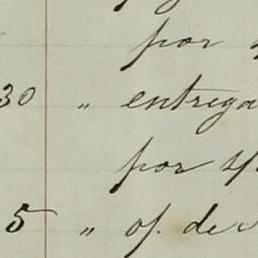 por
30 " entrega
por
5 " of. de